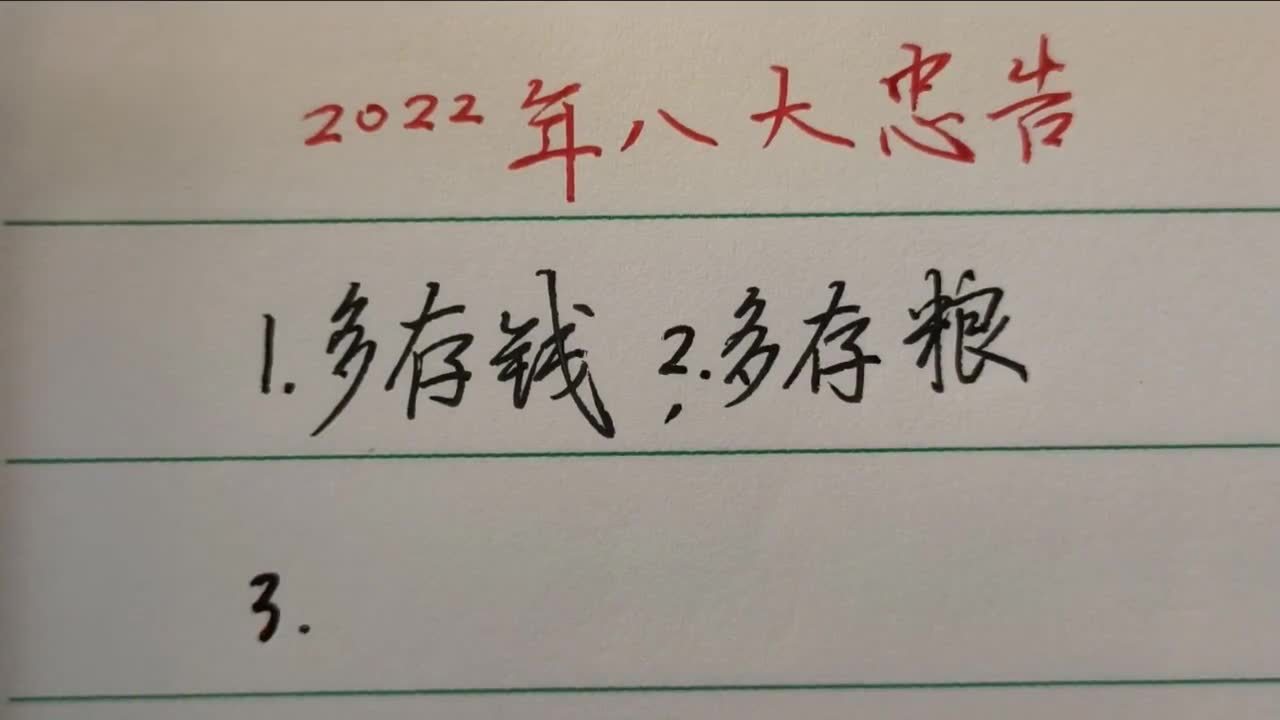 2022年八大忠告
1.多存钱，2.多存粮
3.